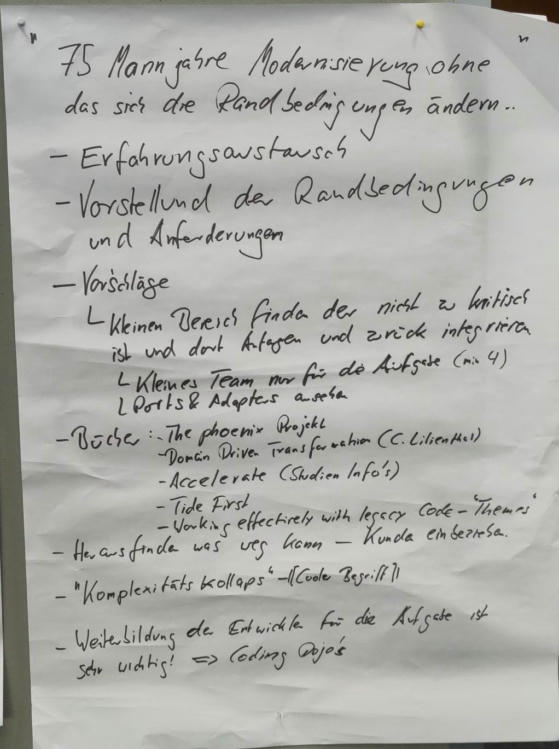 75 Mannjahre Modernisierung ohne
das sich die Randbedingungen ändern..
- Erfahrungsaustausch
- Vorstellund der Randbedingungen
und Anforderungen
- Vorschläge
└ Kleinen Bereich finden der nicht zu kritisch
ist und dort Anfagen und zurück integrieren
└ Kleines Team nur für die Aufgabe (min 4)
└ Ports & Adapters ansehen
- Bücher: - The phoenix Projekt
- Domain Driven Transformation (C. Lilienthal)
- Accelerate (Studien Info's)
- Tide First
- Working effectively with legacy Code - "Themes"
- Herausfinden was weg kann - Kunda einbeziehen.
- "Komplexitäts kollaps" - [[Cooler Begriff]]
- Weiterbildung der Entwickler für die Aufgabe ist
sehr wichtig! => Coding Dojo's